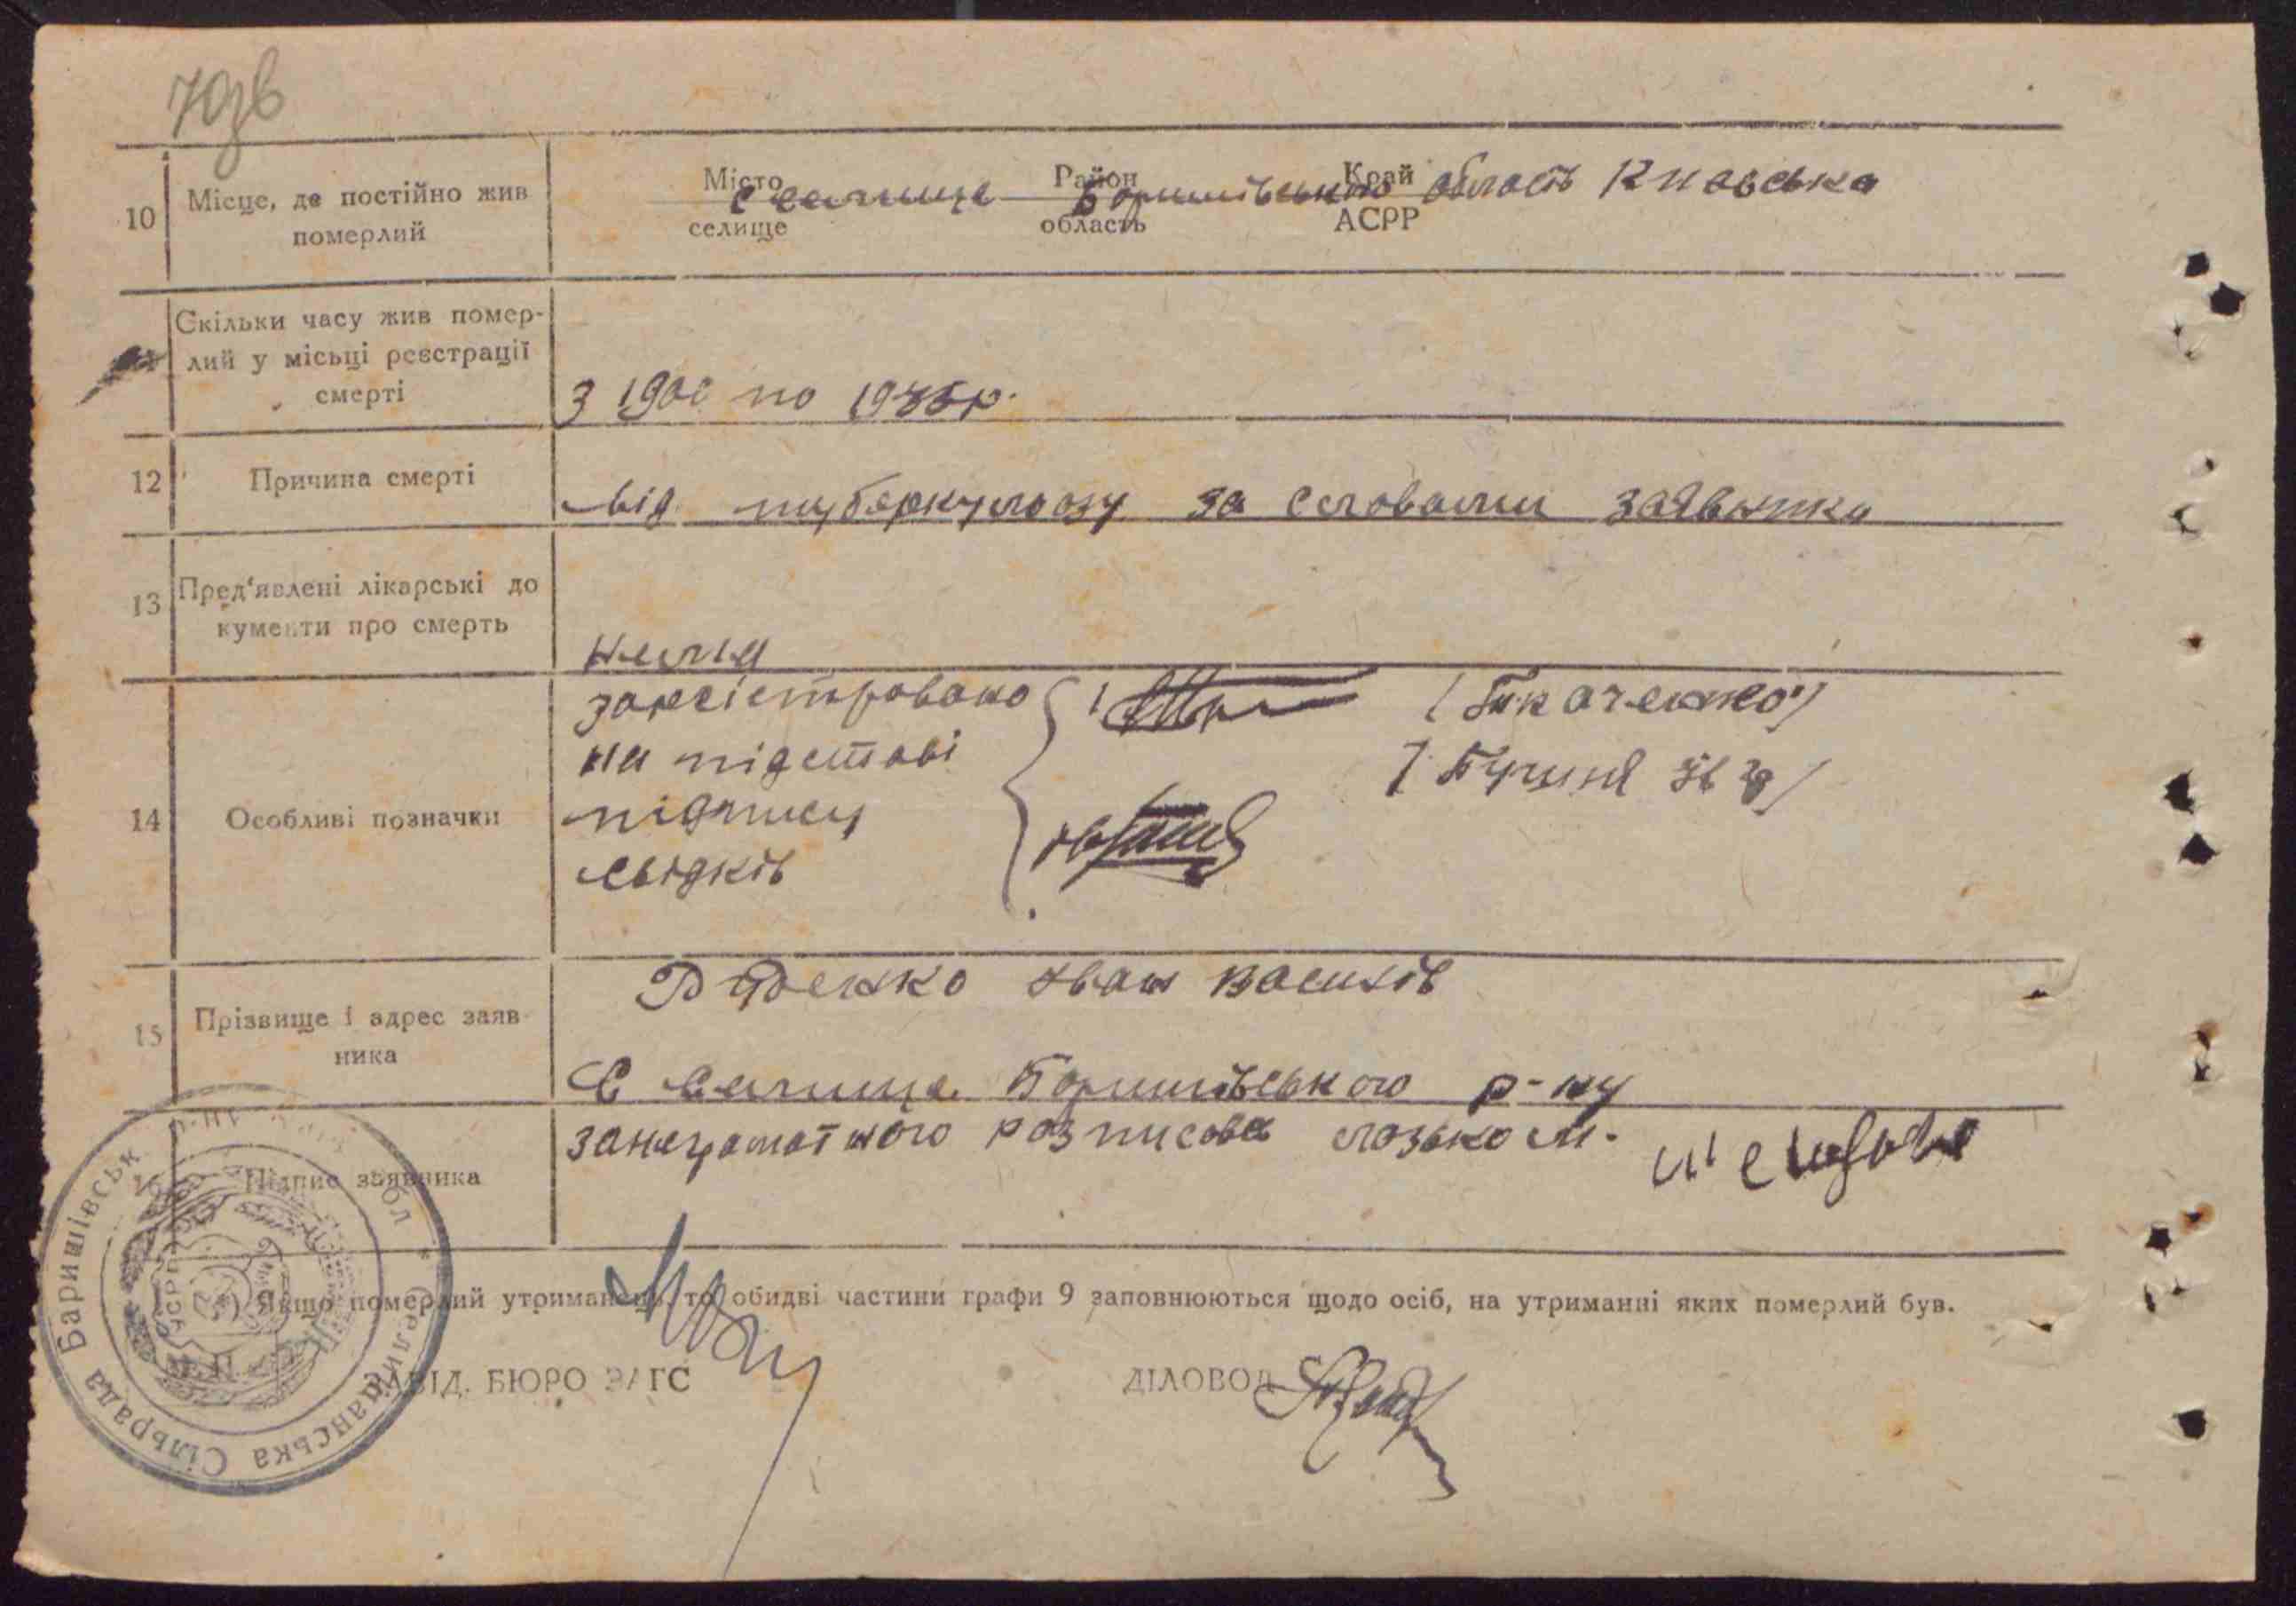 70зв
10 Місце, де постійно жив померлий
Місто селище Район область Край АСРР
с Селище Баришівського область Київська
Скільки часу жив помер-
лий у місьці реєстрації
смерті
З 190 по 1945р.
12 Причина смерті
від туберкульозу за словами заявника
13 Пред'явлені лікарські до
кументи про смерть
Немія
14 Особливі позначки
зареєстровано
на підставі
підпису
свідків
/ Ткаченко /
15 Прізвище і адрес заяв-
ника
Іван Василів
С Селище Баришівського р-ну
16 Підпис заявника
за неграмотного розписовся
Якщо померлий утриманець, то обидві частини графи 9 заповнюються щодо осіб, на утриманні яких померлий був.
ЗАВІД. БЮРО ЗАГС
ДІЛОВОД
Селищанська Сільрада Баришівськ р-ну
УСРР